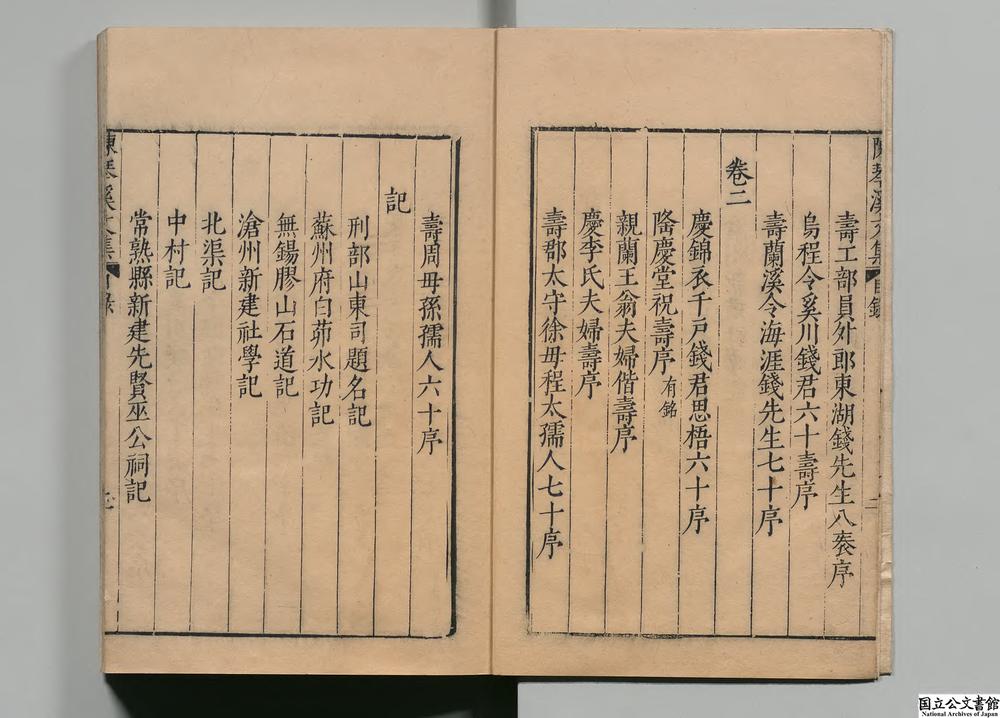 陳琴溪文集 目錄 二
壽工部員外郎東湖錢先生八袠序
烏程令奚川錢君六十壽序
壽蘭溪令海涯錢先生七十序
卷二
慶錦衣千戸錢君思梧六十序
隆慶堂祝壽序 有銘
親蘭王翁夫婦偕壽序
慶李氏夫婦壽序
壽郡太守徐母程太孺人七十序
壽周母孫孺人六十序
記
刑部山東司題名記
蘇州府白茆水功記
無錫膠山石道記
滄州新建社學記
北渠記
中村記
常熟縣新建先賢巫公祠記
陳琴溪文集 目錄
国立公文書館
National Archives of Japan